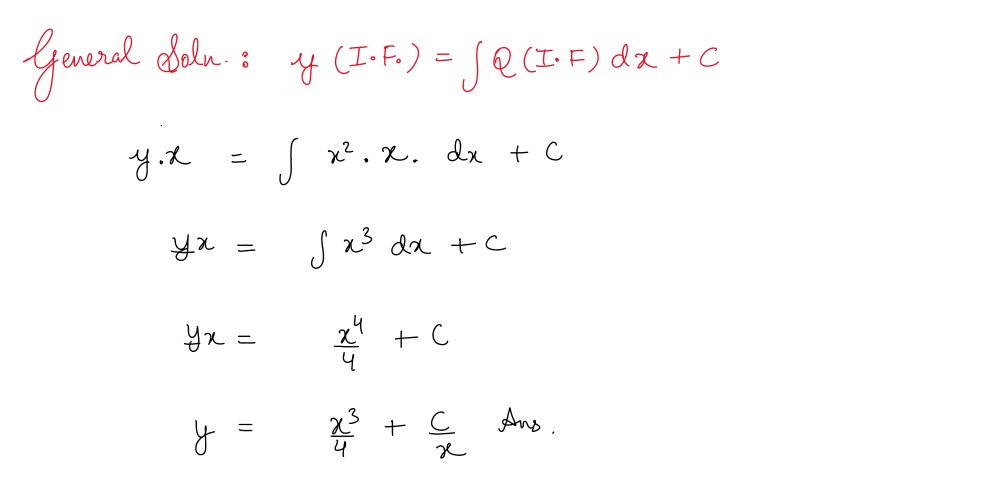 General Soln. : y (I.F.) = ∫ Q (I.F) dx + C
y.x = ∫ x² . x . dx + C
yx = ∫ x³ dx + C
yx = x⁴/4 + C
y = x³/4 + C/x Ans.